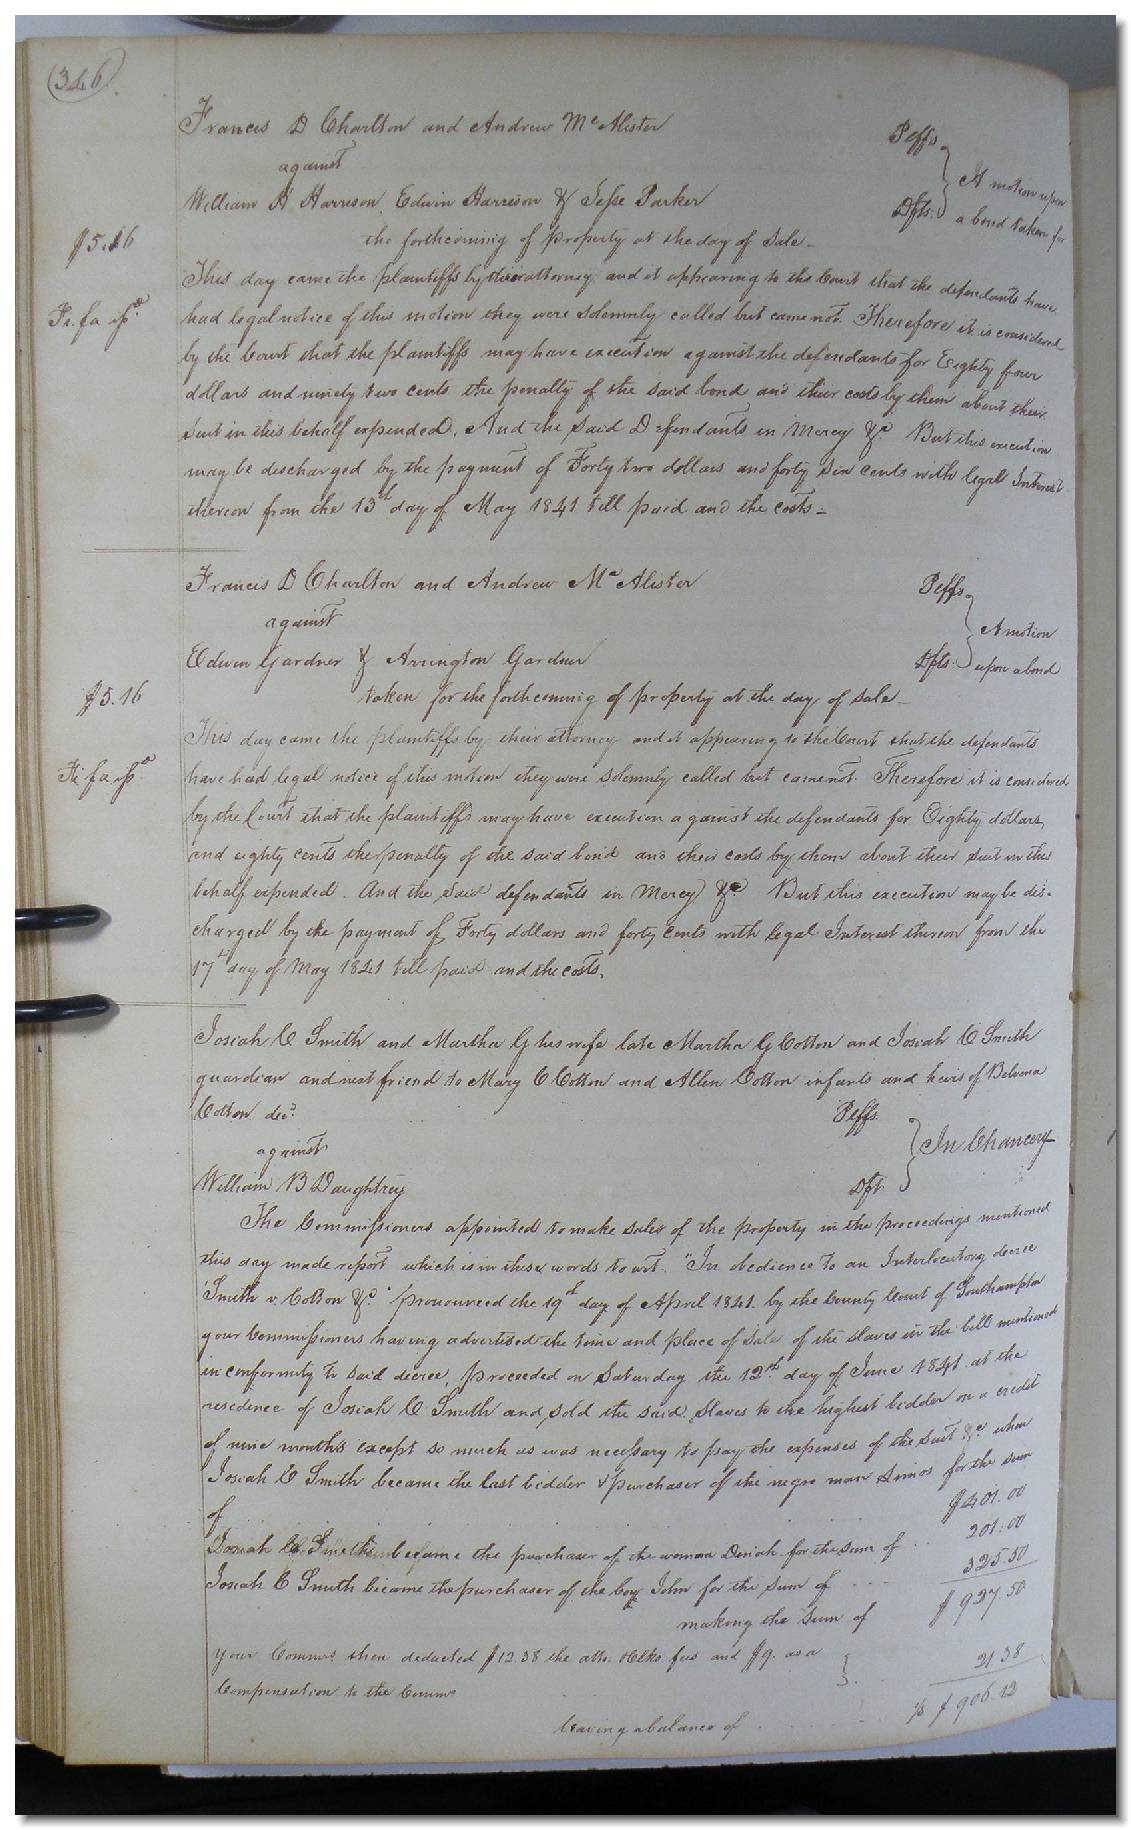 (346)
Francis D Charlton and Andrew McAlister Peffs
against
William H Harrison, Edwin Harrison & Jesse Parker Dfts. A motion upon a bond taken for
the forthcoming of property at the day of sale-
$5.16
Fi. fa isd.
This day came the plaintiffs by their attorney and it appearing to the Court that the defendants have
had legal notice of this motion they were solemnly called but came not. Therefore it is considered
by the Court that the plaintiffs may have execution against the defendants for Eighty four
dollars and ninety two cents the penalty of the said bond and their costs by them about their
suit in this behalf expended. And the said Defendants in Mercy &c But this execution
may be discharged by the payment of Forty two dollars and forty six cents with legal Interest
thereon from the 13th day of May 1841 till paid and the costs-
Francis D Charlton and Andrew McAlister Peffs.
against
Edwin Gardner & Arrington Gardner Dfts. A motion upon a bond
taken for the forthcoming of property at the day of sale-
$5.16
Fi. fa isd.
This day came the plaintiffs by their attorney and it appearing to the Court that the defendants
have had legal notice of this motion they were solemnly called but came not. Therefore it is considered
by the Court that the plaintiffs may have execution against the defendants for Eighty dollars,
and eighty cents the penalty of the said bond and their costs by them about their suit in this
behalf expended. And the said defendants in Mercy &c But this execution may be dis-
charged by the payment of Forty dollars and forty cents with legal Interest thereon from the
17th day of May 1841 till paid and the costs.
Josiah C Smith and Martha G his wife late Martha G Cotton and Josiah C Smith
guardian and next friend to Mary C Cotton and Allen Cotton infants and heirs of
Cotton decd. Peffs.
against In Chancery
William B Daughtrey Dft.
The Commissioners appointed to make sales of the property in the proceedings mentioned
this day made report which is in these words to wit. "In obedience to an Interlocutory decree
'Smith v. Cotton &c.' pronounced the 19th day of April 1841 by the County Court of Southampton
your Commissioners having advertised the time and place of sale of the slaves in the bill mentioned
in conformity to said decree, proceeded on Saturday the 12th day of June 1841 at the
residence of Josiah C Smith and sold the said slaves to the highest bidder on a credit
of nine months except so much as was necessary to pay the expenses of the suit &c when
Josiah C Smith became the last bidder & purchaser of the negro man for the sum
of $401.00
Josiah C Smith became the purchaser of the woman Dinah for the sum of .. 201.00
Josiah C Smith became the purchaser of the boy John for the sum of ... 325.50
making the sum of $927.50
Your Commrs then deducted $12.38 the atto. clks fees and $9. as a
Compensation to the Commrs 21.38
leaving a balance of $906.12